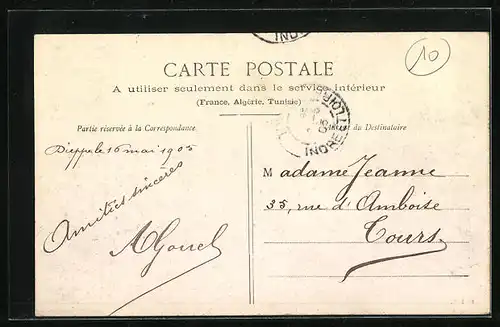 INDRE
10
CARTE POSTALE
A utiliser seulement dans le service intérieur
(France, Algérie, Tunisie)
Partie réservée à la Correspondance
du Destinataire
INDRE
Dieppe le 16 mai 1905
Amitiés sincères
Madame Jeanne
35, rue d'Amboise
Tours